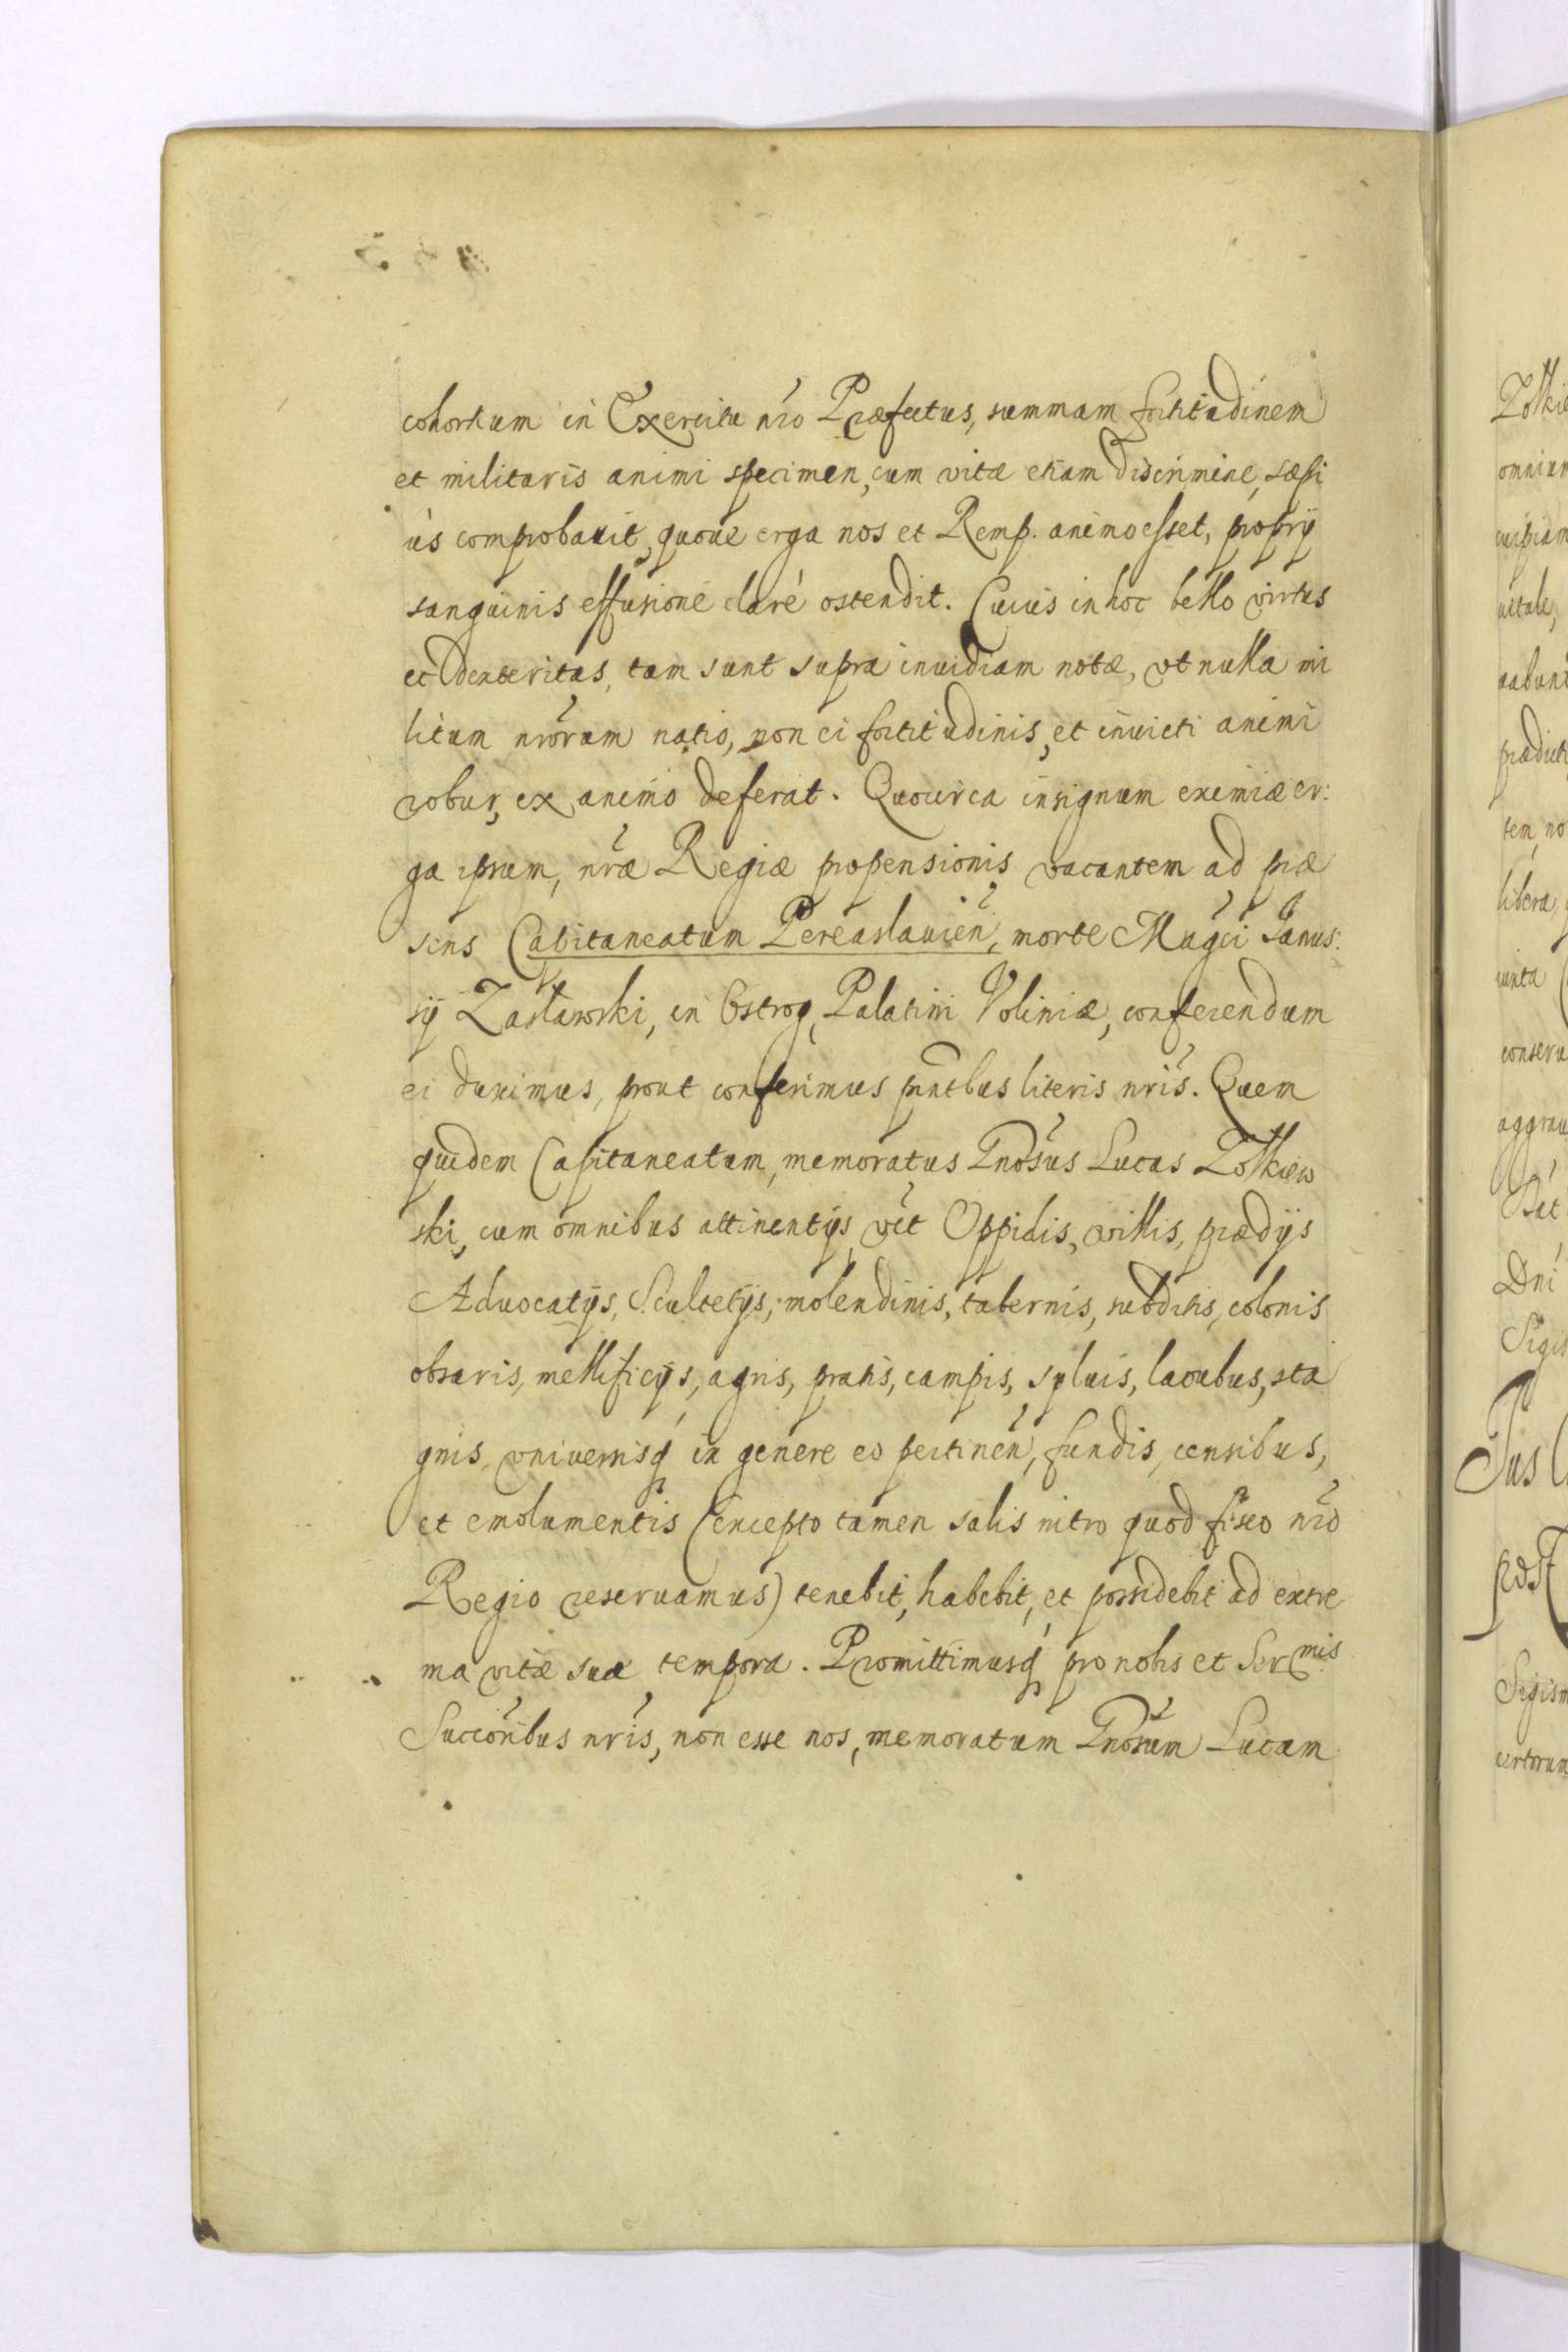 cohortum in Exercitu nr̃o Præfectus, summam fortitudinem
et militaris animi specimen, cum vitæ etiam discrimine, sæpi
ùs comprobauit, quoue erga nos et Remp. animo esset, proprÿ
sanguinis effusione clarè ostendit. Cuius in hoc bello virtus
et dexteritas, tam sunt supra inuidiam notæ, vt nulla mi
litum nr̃orum natio, non ei fortitudinis, et inuicti animi
robur, ex animo deferat. Quocirca in signum eximiæ er:
ga ipsum, nr̃æ Regiæ propensionis vacantem ad præ
sens Capitaneatum Pereaslauień, morte Mag̃ci Janus:
sÿ Zasławski, in Ostrog, Palatini Voliniæ, conferendum
ei duximus, prout conferimus pñtbus literis nr̃is. Quem
quidem Capitaneatum, memoratus Gnõsus Lucas Zołkiew
ski, cum omnibus attinentÿs, vt̃ Oppidis, villis, prædÿs
Aduocatÿs, Scultetÿs, molendinis, tabernis, subditis, colonis
obraris, mellificÿs, agris, pratis, campis, syluis, lacubus, sta
gnis, vniuersisq́ in genere eo pertineñ, fundis, censibus,
et emolumentis (excepto tamen salis nitro quod fisco nr̃o
Regio reseruamus) tenebit, habebit, et possidebit ad extre
ma vitæ suæ tempora. Promittimusq́ pro nobis et Ser mis
Succõribus nr̃is, non esse nos, memoratum Gnõsum Lucam